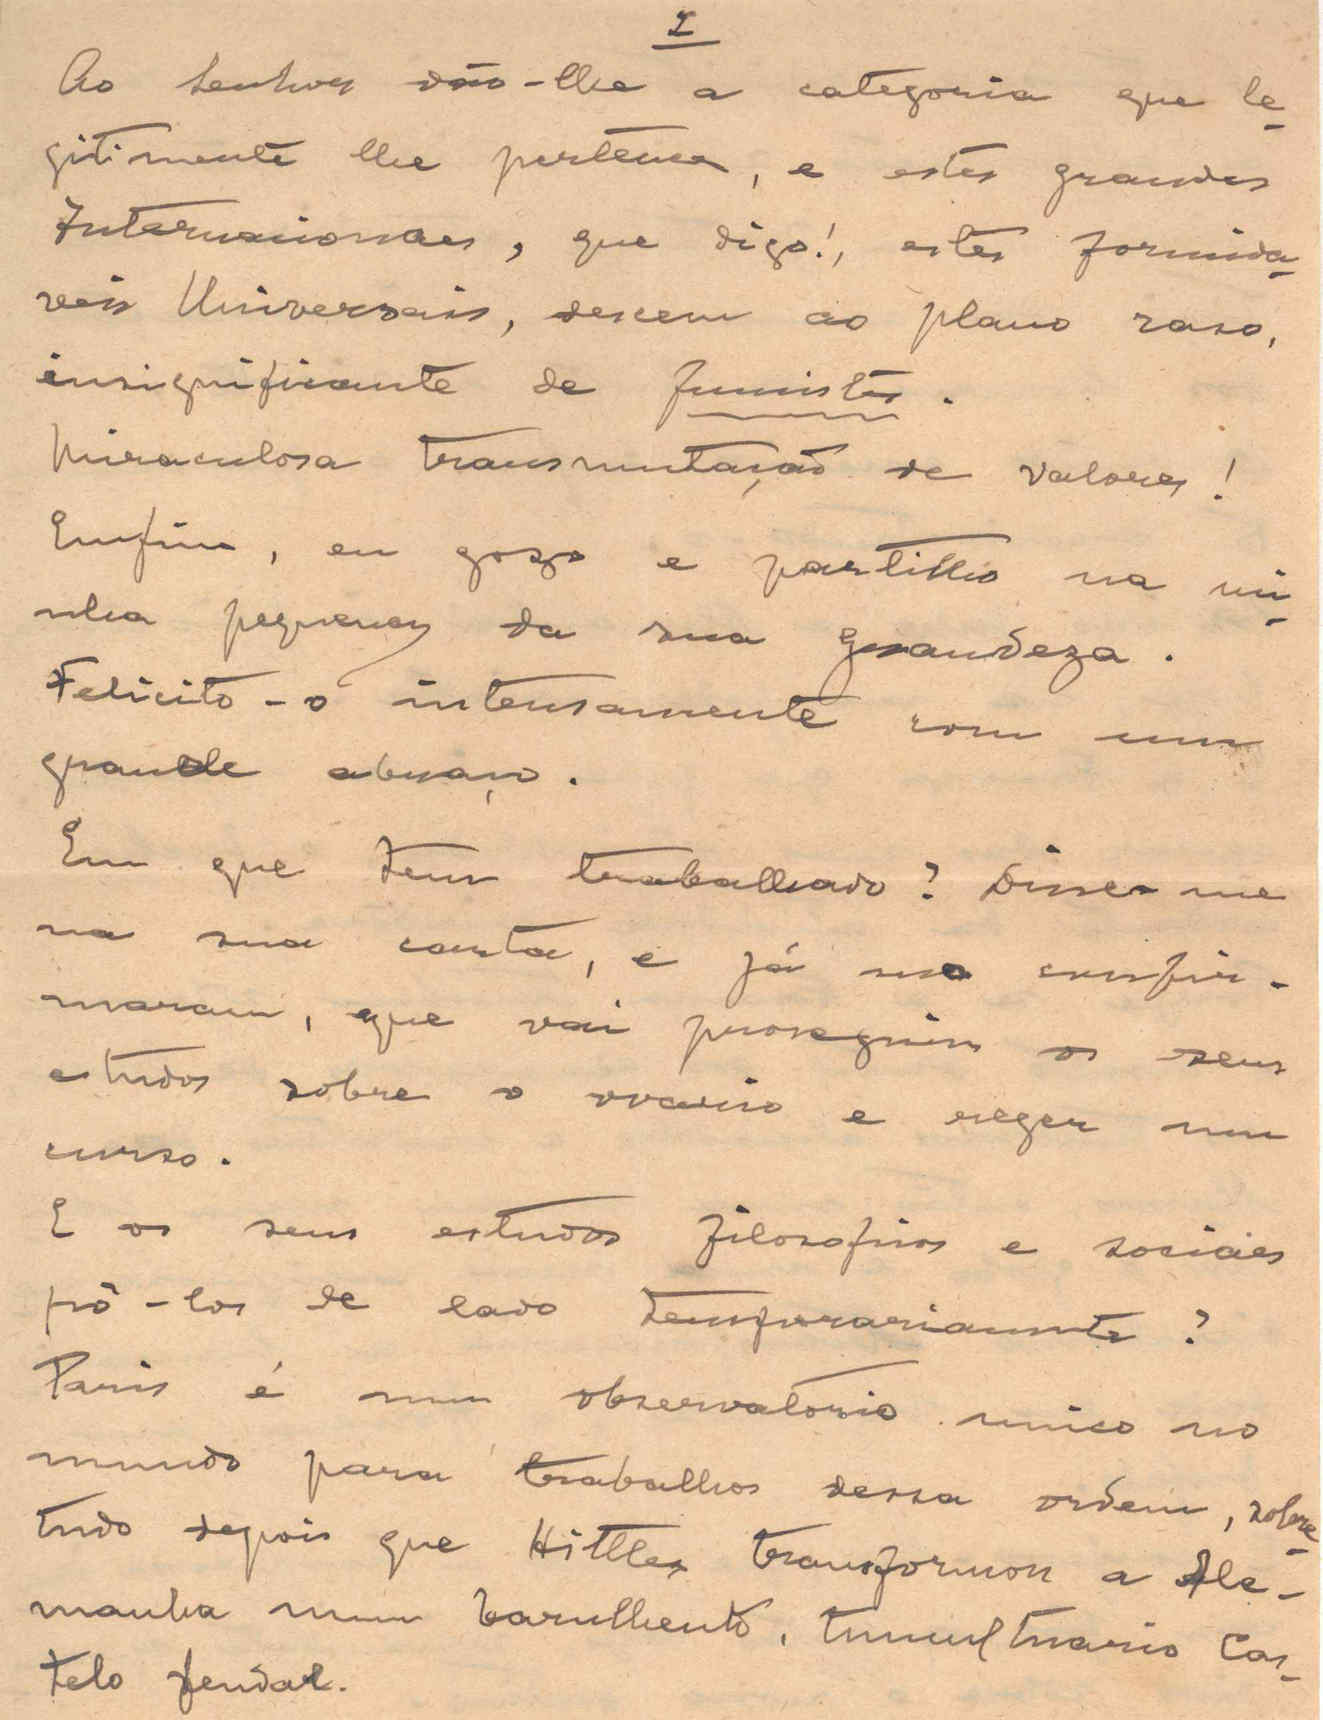 2
Ao Senhor dão-lhe a categoria que le-
gitimente lhe pertence, e estes grandes
Internacionaes, que digo!, estes formida-
veis Universais, descem ao plano raso,
insignificante de fumistes.
Miraculosa transmutação de valores!
Emfim, eu gozo e partilho na mi-
nha pequenez da sua grandeza.
Felicito-o intensamente com um
grande abraço.
Em que tem trabalhado? Disse-me
na sua carta, e já mo confir-
maram, que vai proseguir os seus
estudos sobre o ovario e reger um
curso.
E os seus estudos filosoficos e sociaes
pô-los de lado temporariamente?
Paris é um observatório unico no
mundo para trabalhos dessa ordem, sobre-
tudo depois que Hittler transformou a Ale-
manha num barulhento, tumultuario Cas-
telo feudal.